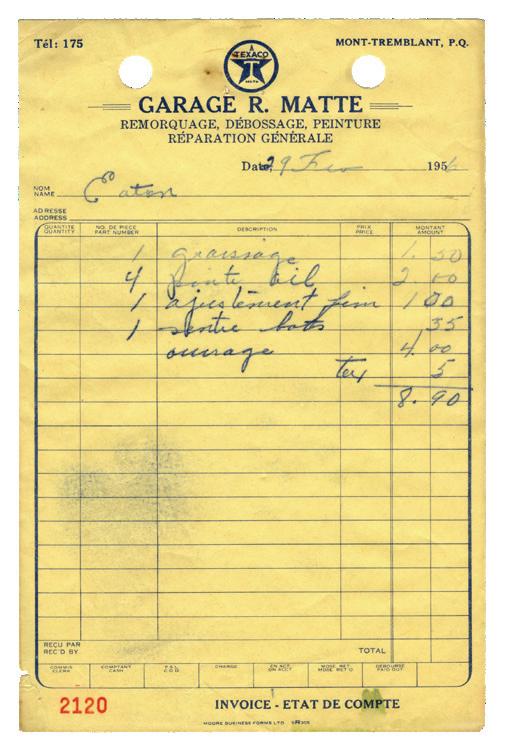 Tél: 175
MONT-TREMBLANT, P.Q.
TEXACO
T
GARAGE R. MATTE
REMORQUAGE, DÉBOSSAGE, PEINTURE
RÉPARATION GÉNÉRALE
Date 29 Fev 1956
NOM
NAME Eaton
ADRESSE
ADDRESS
QUANTITE NO. DE PIECE DESCRIPTION PRIX MONTANT
QUANTITY PART NUMBER PRICE AMOUNT
1 graissage 1.50
4 pinte oil 2.00
1 ajustement 1 00
1 35
ouvrage 4.00
tax 5
8.90
REÇU PAR
REC'D BY
TOTAL
COMMIS COMPTANT CHARGE EN ACT. MDSE RET. DEBOURSE
CLERK CASH C.O.D. ON ACCT MDSE RET'D PAID OUT
2120
INVOICE - ETAT DE COMPTE
MOORE BUSINESS FORMS LTD